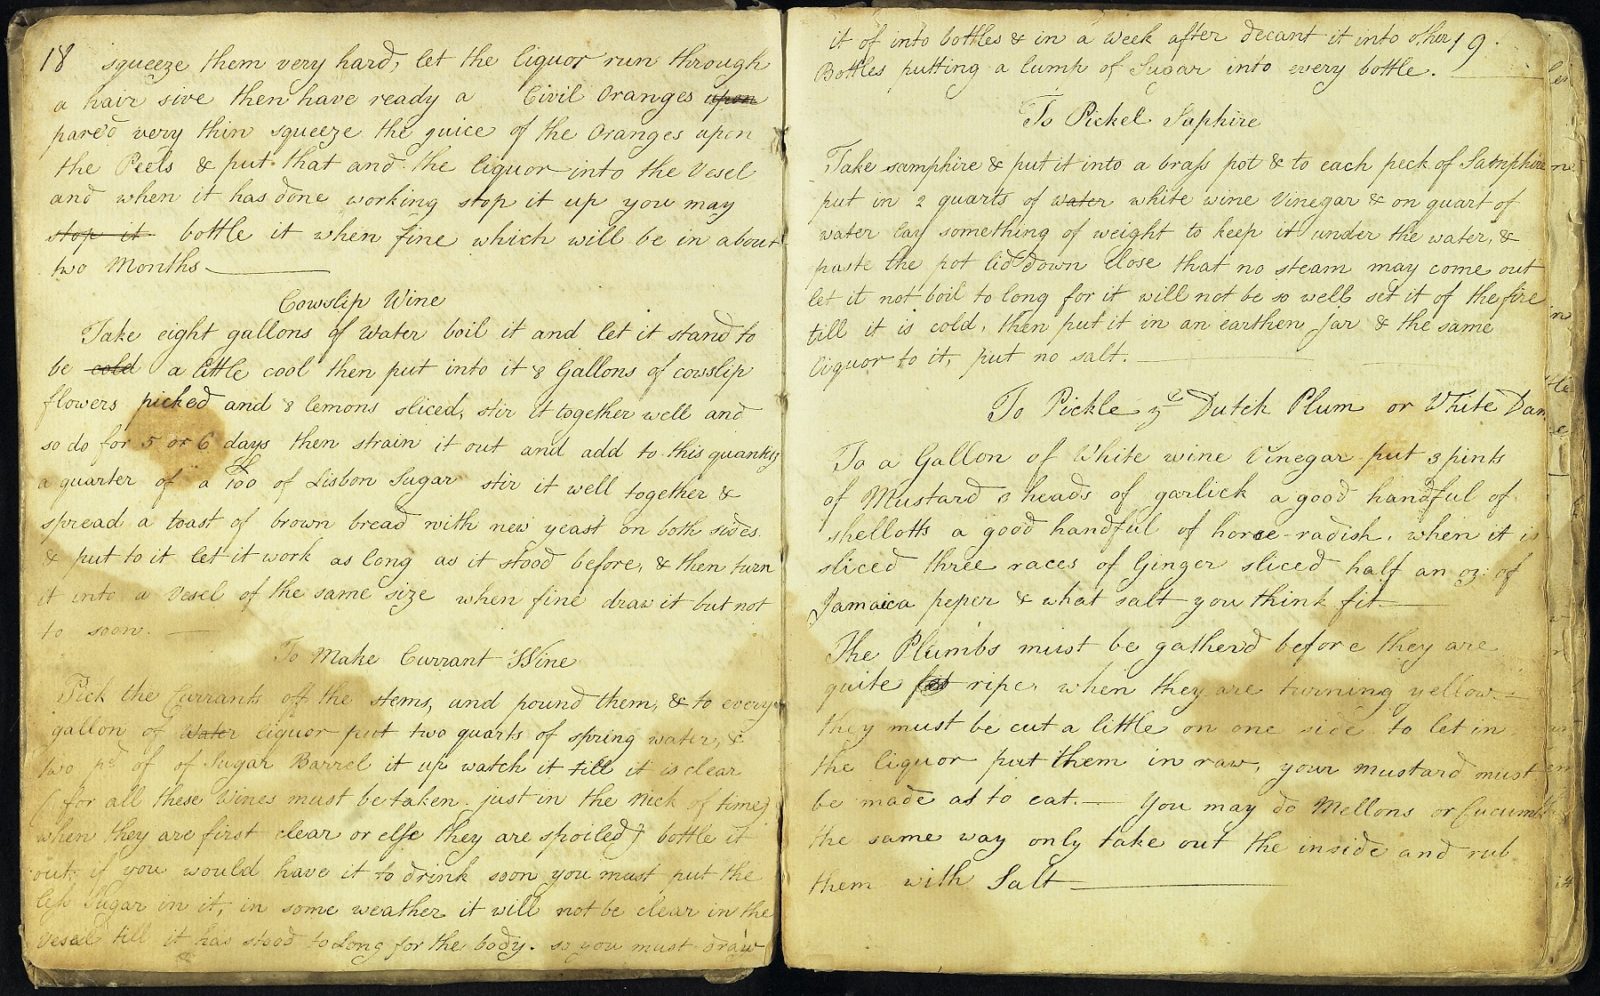 18 squeeze them very hard, let the liquor run through
a hair sive then have ready a Civil Oranges upon
pare'd very thin squeeze the juice of the Oranges upon
the Peels & put that and the liquor into the Vesel
and when it has done working stop it up you may
stop it bottle it when fine which will be in about
two Months
Cowslip Wine
Take eight gallons of Water boil it and let it stand to
be cold a little cool then put into it 8 Gallons of cowslip
flowers picked and 8 lemons sliced, stir it together well and
so do for 5 or 6 days then strain it out and add to this quantity
a quarter of a Too of Lisbon Sugar stir it well together &
spread a toast of brown bread with new yeast on both sides
& put to it let it work as long as it stood before, & then turn
it into a Vesel of the same size when fine draw it but not
to soon.
To Make Currant Wine
Pick the Currants off the stems, and pound them, & to every
gallon of Water liquor put two quarts of spring water, &
two pd of of Sugar Barrel it up watch it till it is clear
(for all these Wines must be taken just in the nick of time)
when they are first clear or else they are spoiled) bottle it
out: if you would have it to drink soon you must put the
less Sugar in it, in some weather it will not be clear in the
Vesel till it has stood to Long for the body. so you must draw
it of into bottles & in a week after decant it into other 19.
Bottles putting a lump of Sugar into every bottle.
To Pickel Saphire
Take samphire & put it into a brass pot & to each peck of Samphire
put in 2 quarts of water white wine Vinegar & on quart of
water lay something of weight to keep it under the water, &
paste the pot lid down close that no steam may come out
let it not boil to long for it will not be so well set it of the fire
till it is cold, then put it in an earthen Jar & the same
liquor to it, put no salt.
To Pickle ye Dutch Plum or White Dam
To a Gallon of White wine Vinegar put 3 pints
of Mustard 3 heads of garlick a good handful of
shellotts a good handful of horce-radish, when it is
sliced three races of Ginger sliced half an oz: of
Jamaica peper & what salt you think fit
The Plumbs must be gather'd before they are
quite ripe, when they are turning yellow
they must be cut a little on one side to let in
the liquor put them in raw, your mustard must
be made as to eat. You may do Mellons or Cucumb
the same way only take out the inside and rub
them with Salt